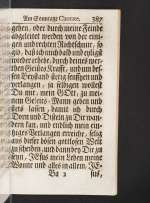 Am Sonntage Cantate. 387
gehen, oder durch meine Feinde
abgeleitet werden von der eini-
gen und rechten Richtschnur, so
gib, daß ich mich bald und eyligst
wieder erhebe, durch deines wer-
then Geistes Krafft, und um des-
sen Beystand stetig seuffzen und
verlangen, zu selbigen wollest
Du mir, mein GOtt, zu mei-
nem Seelen-Mann geben und
und lassen, damit ich durch
Dorn und Disteln zu Dir wan-
dern kan, und endlich mein ein-
ziges Verlangen erreiche, selig
aus dieser bösen gottlosen Welt
zu scheiden, und dann bey Dir zu
seyn, JEsus mein Leben meine
Wonne und alles in allem. JE-
Bb 2 sus,